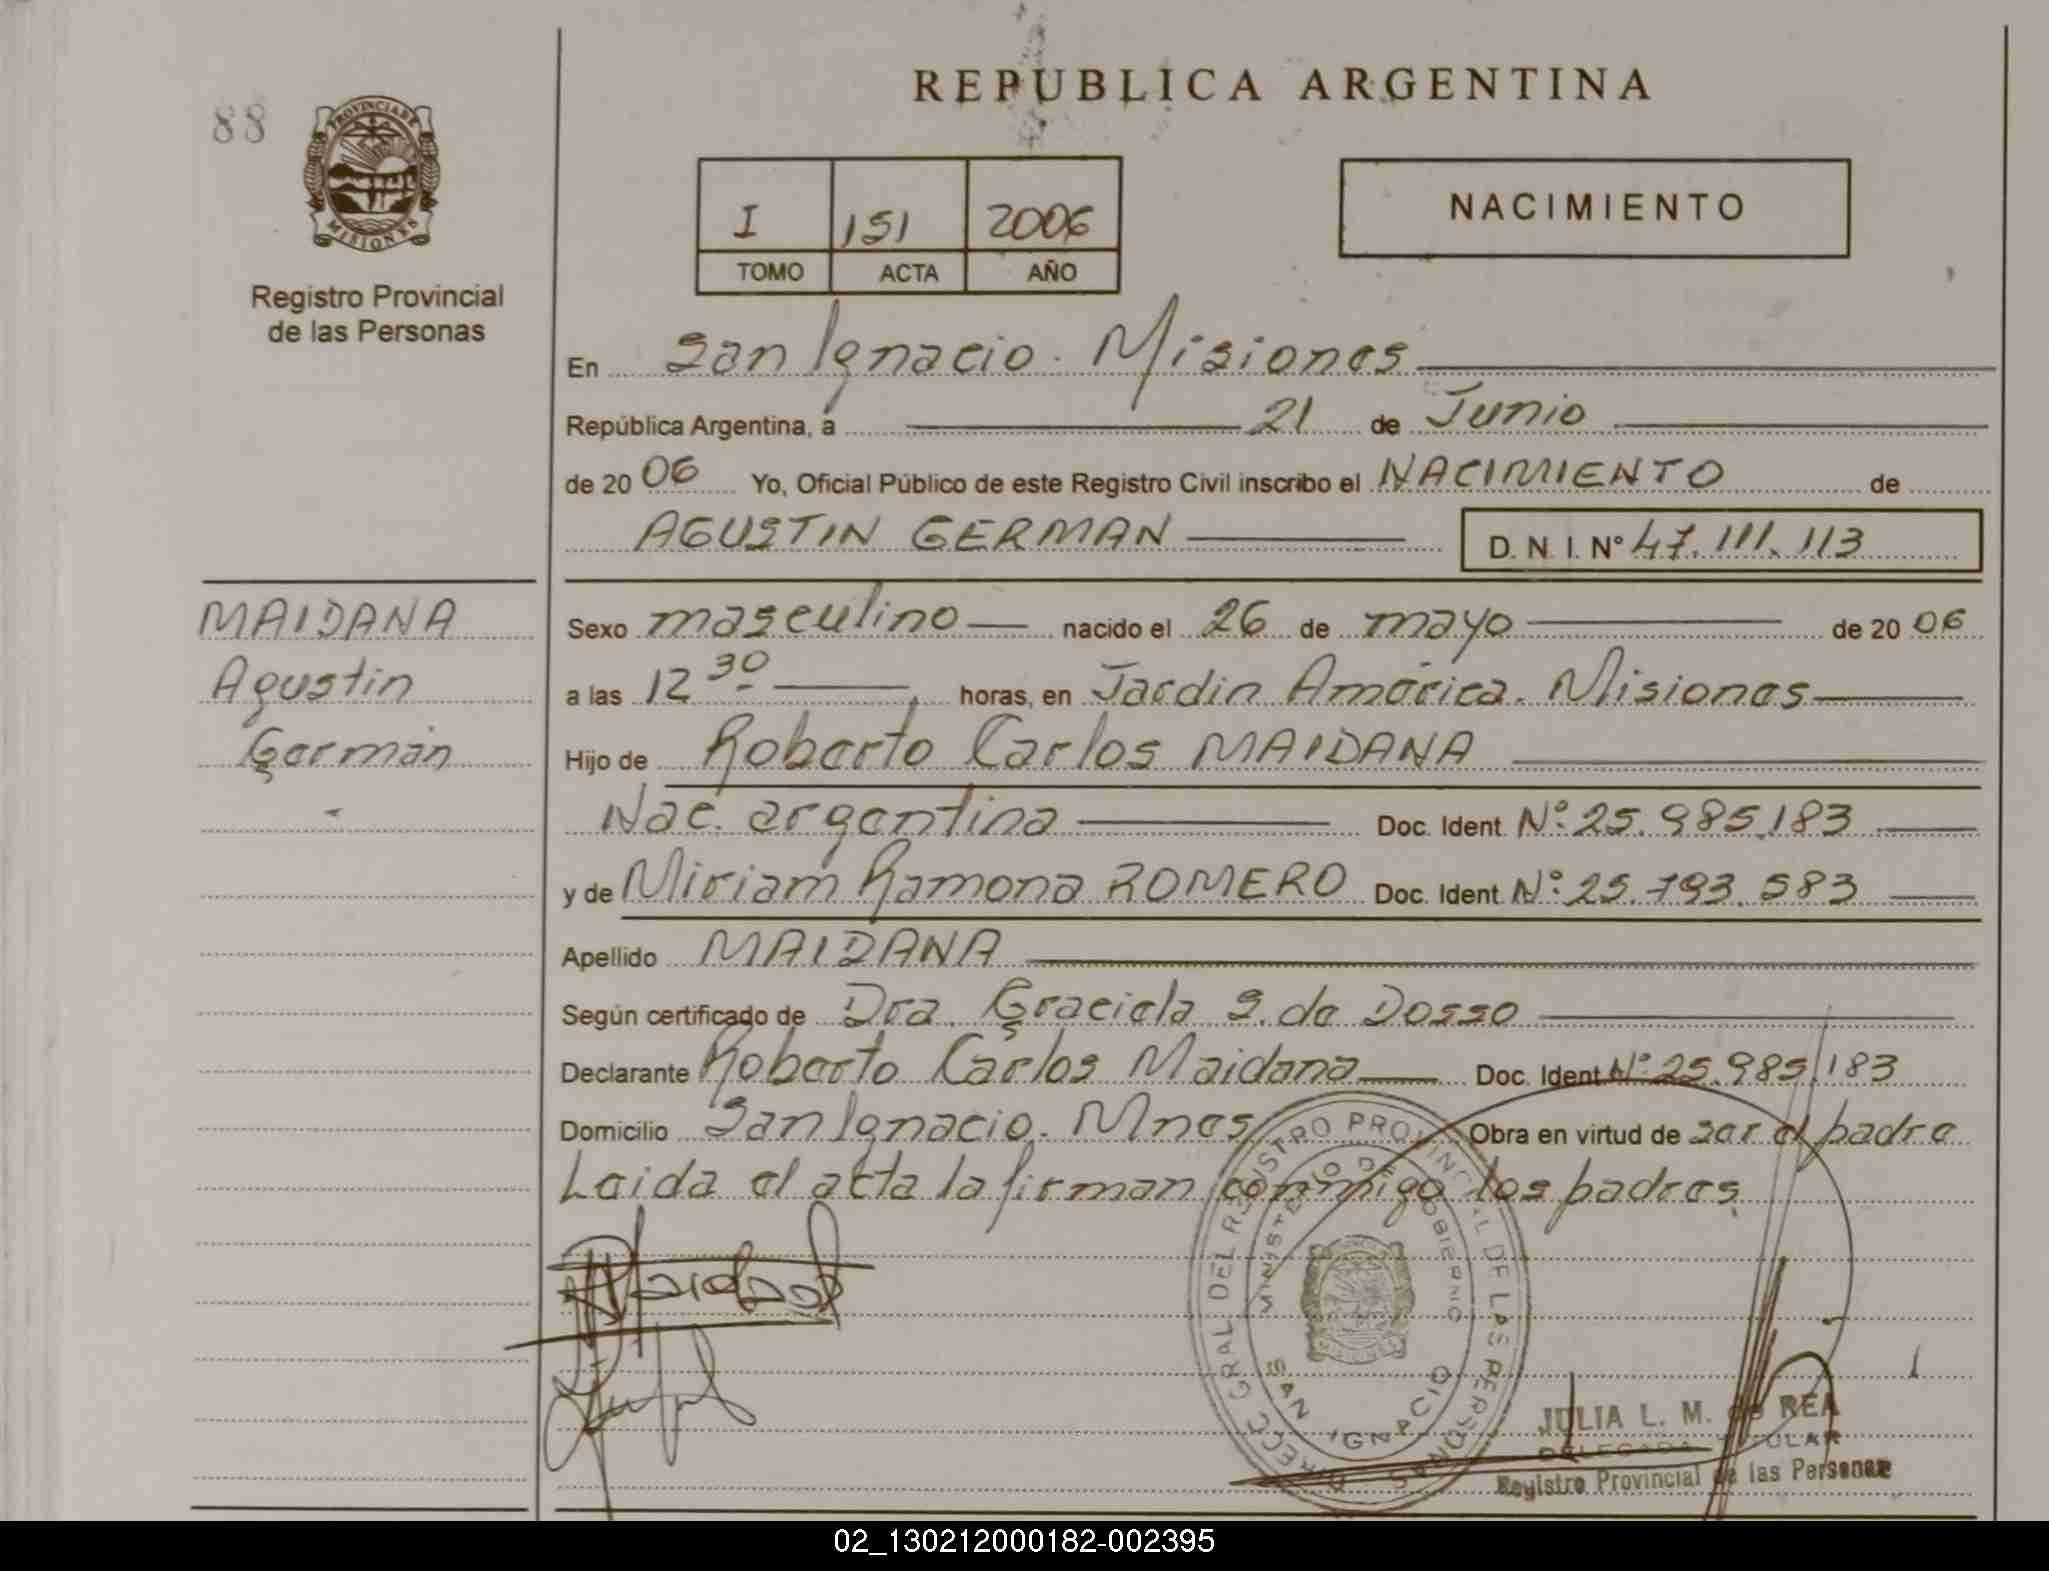 88
PROVINCIA DE
MISIONES
Registro Provincial
de las Personas
REPUBLICA ARGENTINA
I 151 2006
TOMO ACTA AÑO
NACIMIENTO
En San Ignacio. Misiones
República Argentina, a 21 de Junio
de 20 06 Yo, Oficial Público de este Registro Civil inscribo el NACIMIENTO de
AGUSTIN GERMAN D. N. I. N° 47.111.113
MAIDANA
Agustin
Germán
Sexo masculino nacido el 26 de mayo de 20 06
a las 12 30 horas, en Jardin América. Misiones
Hijo de Roberto Carlos MAIDANA
Nac. argentina Doc. Ident. Nº: 25.985.183
y de Miriam Ramona ROMERO Doc. Ident. Nº: 25.793.583
Apellido MAIDANA
Según certificado de Dra. Graciela S. de Dosso
Declarante Roberto Carlos Maidana Doc. Ident. Nº: 25.985.183
Domicilio San Ignacio. Mnes Obra en virtud de ser el padre
Leida el acta la firman conmigo los padres.
DIRECC GRAL DEL REGISTRO PROVINCIAL DE LAS PERSONAS
MINISTERIO DE GOBIERNO
SAN IGNACIO
MISIONES
JULIA L. M. de REA
DELEGADA TITULAR
Registro Provincial de las Personas
02_130212000182-002395